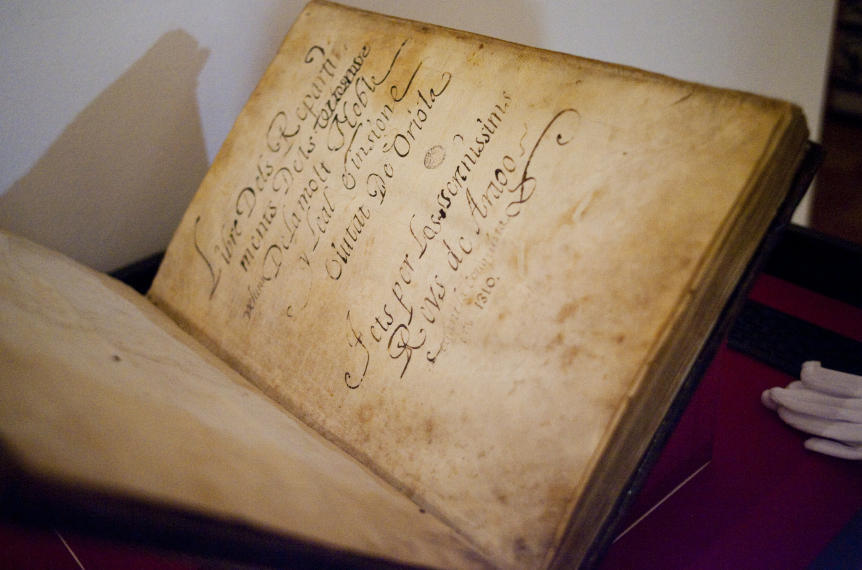 Llibre Dels Reparti
ments Dels terrense
De La molt Noble
y Leal Einsione
Ciutat De Oriola
Fets per Losserenissims
Reÿs de Arago
1310.